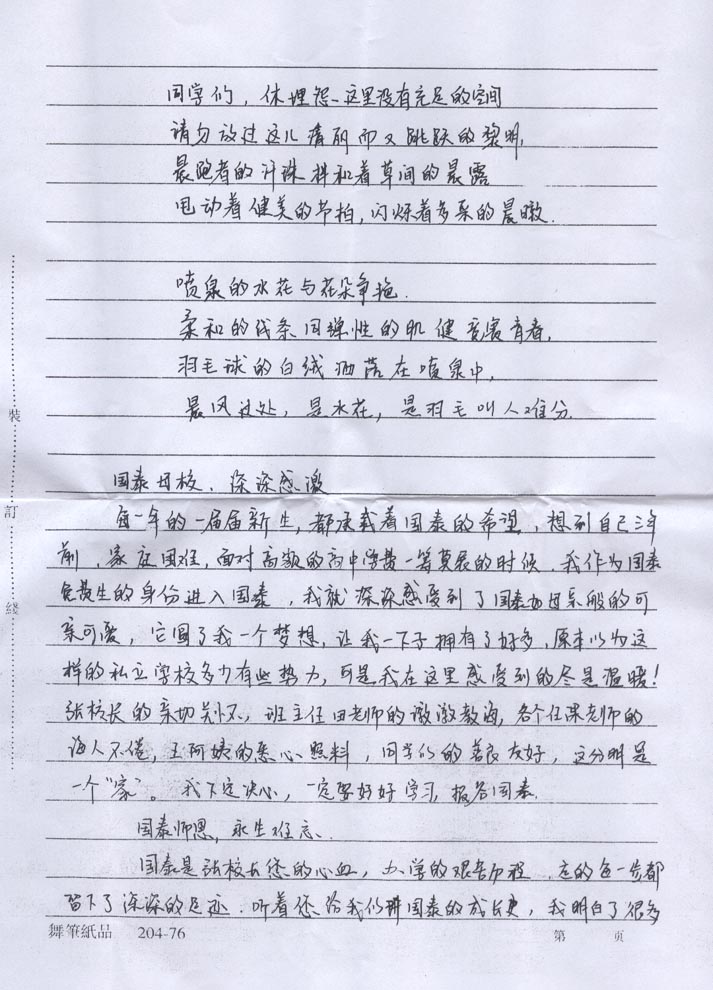 同学们，休埋怨这里没有充足的空间
请勿放过这儿清丽而又跳跃的黎明，
晨跑者的汗珠拌和着草间的晨露
甩动着健美的节拍，闪烁着多采的晨暾．
喷泉的水花与花朵争艳．
柔和的线条同弹性的肌健竞赛青春，
羽毛球的白绒洒落在喷泉中，
晨风过处，是水花，是羽毛叫人难分．
国泰母校、深深感激
每一年的一届届新生，都承载着国泰的希望，想到自己三年
前，家庭困难，面对高额的高中学费一筹莫展的时候，我作为国泰
免费生的身份进入国泰，我就深深感受到了国泰如母亲般的可
亲可爱，它圆了我一个梦想，让我一下子拥有了好多，原本以为这
样的私立学校多少有些势力，可是我在这里感受到的尽是温暖！
张校长的亲切关怀，班主任田老师的谆谆教诲，各个任课老师的
诲人不倦，王阿姨的悉心照料，同学们的善良友好，这分明是
一个“家”。我下定决心，一定要好好学习，报答国泰．
国泰师恩，永生难忘．
国泰是张校长您的心血，办学的艰苦历程，走的每一步都
留下了深深的足迹．听着您给我们讲国泰的成长史，我明白了很多
舞筆紙品 204-76 第 页
裝
訂
綫